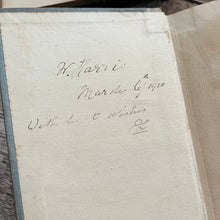 W. Harris
March 6th 1910
With best wishes